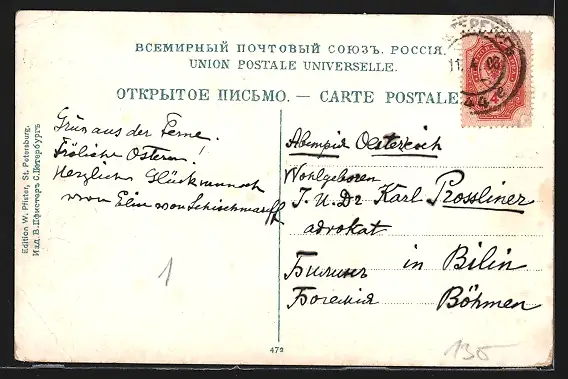 ВСЕМІРНЫЙ ПОЧТОВЫЙ СОЮЗЪ. РОССІЯ.
UNION POSTALE UNIVERSELLE.
ОТКРЫТОЕ ПИСЬМО. — CARTE POSTALE.
Grüss aus der Ferne!
Fröliche Ostern!
Herzlichen Glückwunsch
von Elin von Schischmareff
Австрія Österreich
Wohlgeboren
J. U. Dr Karl Prossliner
advokat
Билинъ in Bilin
Богемія Böhmen
Edition W. Pfister, St. Petersburg.
Изд. В. Пфистеръ С.Петербургъ
472
1
135
11.4.08
44